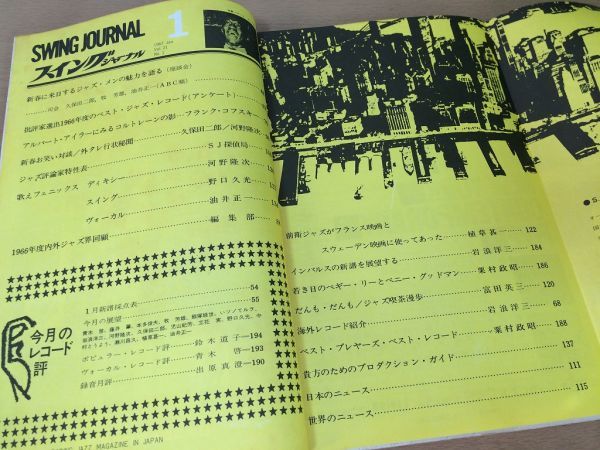 SWING JOURNAL
スイングジャーナル
1
Vol. 21
No. 1
新春に来日するジャズ・メンの魅力を語る(座談会)
司会 久保田二郎, 牧 芳雄, 油井正一(ABC順)
批評家選出1966年度のベスト・ジャズ・レコード(アンケート)
アルバート・アイラーにみるコルトレーンの影…フランク・コフスキー
新春お笑い対談/外タレ行状秘聞 久保田二郎/河野隆次
ジャズ評論家特性表 SJ探偵局
歌えフェニックス ディキシー 河野隆次
スイング 野口久光
ヴォーカル 油井正一
1966年度内外ジャズ界回顧 編集部
今月の
レコード
評
1月新譜採点表 54
今月の展望 55
ポピュラー・レコード評 鈴木道子 194
ヴォーカル・レコード評 青木 啓 193
録音月評 出原真澄 190
JAZZ MAGAZINE IN JAPAN
前衛ジャズがフランス映画と
スウェーデン映画に使ってあった 植草甚一 122
インパルスの新譜を展望する 岩浪洋三 184
若き日のペギー・リーとベニー・グッドマン 粟村政昭 186
だんも・だんも/ジャズ喫茶漫歩 富田英三 120
海外レコード紹介 岩浪洋三 68
ベスト・プレヤーズ・ベスト・レコード 粟村政昭 188
貴方のためのプロダクション・ガイド 137
日本のニュース 111
世界のニュース 115